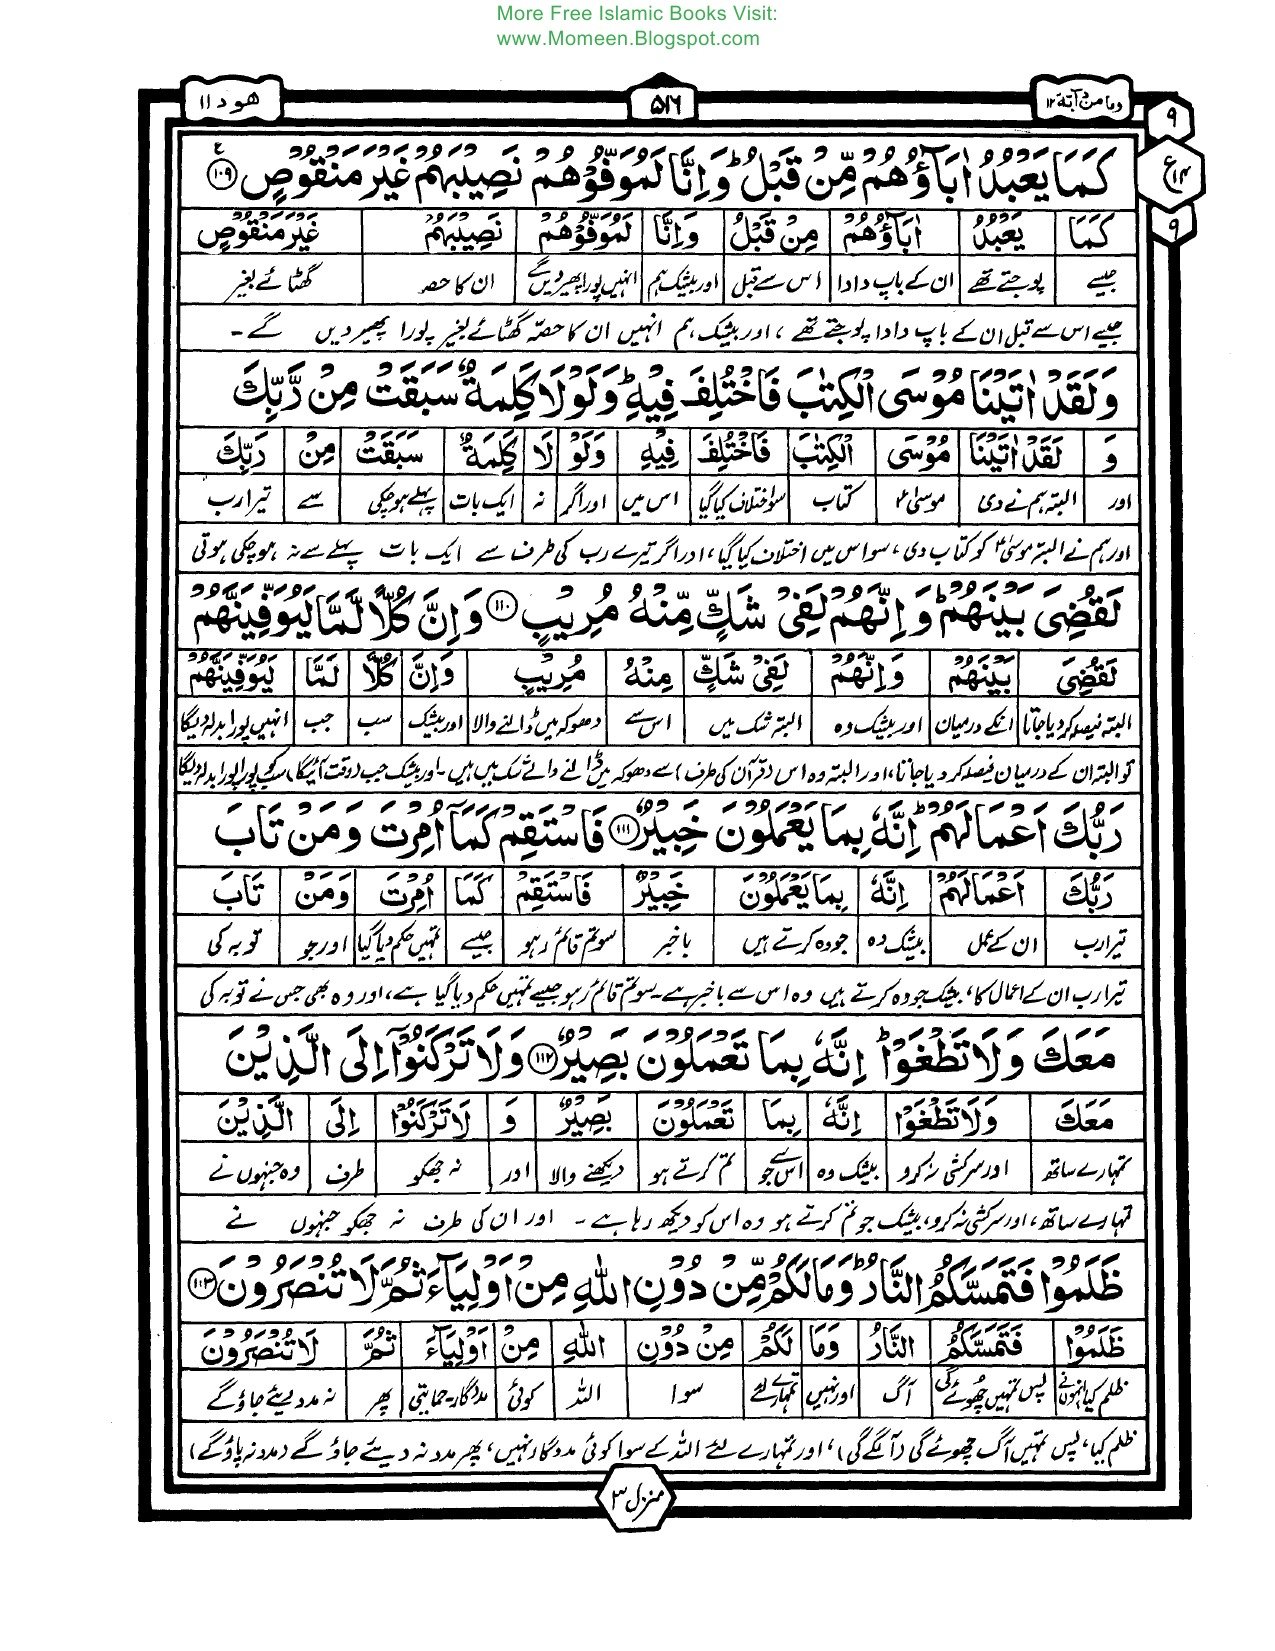 More Free Islamic Books Visit:
www.Momeen.Blogspot.com
وما من دآبة ۱۲
۵۱۶
هود ۱۱
۹
ع ۱۴
۹
كَمَا يَعْبُدُ اٰبَآؤُهُمْ مِّنْ قَبْلُ ؕ وَ اِنَّا لَمُوَفُّوْهُمْ نَصِيْبَهُمْ غَيْرَ مَنْقُوْصٍ ﴿۱۰۹﴾ ع
كَمَا يَعْبُدُ اٰبَآؤُهُمْ مِنْ قَبْلُ وَاِنَّا لَمُوَفُّوْهُمْ نَصِيْبَهُمْ غَيْرَ مَنْقُوْصٍ
جیسے پوجتے تھے ان کے باپ دادا اس سے قبل اور بیشک ہم انہیں پورا پھیر دیں گے ان کا حصہ گھٹائے بغیر
جیسے اس سے قبل ان کے باپ دادا پوجتے تھے، اور بیشک ہم انہیں ان کا حصّہ گھٹائے بغیر پورا پھیر دیں گے۔
وَ لَقَدْ اٰتَيْنَا مُوْسَى الْكِتٰبَ فَاخْتُلِفَ فِيْهِ ؕ وَلَوْلَا كَلِمَةٌ سَبَقَتْ مِنْ رَّبِّكَ
وَ لَقَدْ اٰتَيْنَا مُوْسَى الْكِتٰبَ فَاخْتُلِفَ فِيْهِ وَلَوْ لَا كَلِمَةٌ سَبَقَتْ مِنْ رَبِّكَ
اور البتہ ہم نے دی موسیٰؑ کتاب سو اختلاف کیا گیا اس میں اور اگر نہ ایک بات پہلے ہو چکی سے تیرا رب
اور ہم نے البتہ موسیٰؑ کو کتاب دی، سو اس میں اختلاف کیا گیا، اور اگر تیرے رب کی طرف سے ایک بات پہلے سے نہ ہو چکی ہوتی
لَقُضِىَ بَيْنَهُمْ ؕ وَ اِنَّهُمْ لَفِىْ شَكٍّ مِّنْهُ مُرِيْبٍ ﴿۱۱۰﴾ وَاِنَّ كُلًّا لَّمَّا لَيُوَفِّيَنَّهُمْ
لَقُضِىَ بَيْنَهُمْ وَاِنَّهُمْ لَفِىْ شَكٍّ مِنْهُ مُرِيْبٍ وَاِنَّ كُلًّا لَمَّا لَيُوَفِّيَنَّهُمْ
البتہ فیصلہ کر دیا جاتا انکے درمیان اور بیشک وہ البتہ شک میں اس سے دھوکہ میں ڈالنے والا اور بیشک سب جب انہیں پورا بدلہ دیگا
تو البتہ ان کے درمیان فیصلہ کر دیا جاتا، اور البتہ وہ اس (قرآن کی طرف) سے دھوکہ میں ڈالنے والے شک میں ہیں۔ اور بیشک جب (وقت آئیگا) سب کو پورا پورا بدلہ دیگا
رَبُّكَ اَعْمَالَهُمْ ؕ اِنَّهٗ بِمَا يَعْمَلُوْنَ خَبِيْرٌ ﴿۱۱۱﴾ فَاسْتَقِمْ كَمَآ اُمِرْتَ وَ مَنْ تَابَ
رَبُّكَ اَعْمَالَهُمْ اِنَّهٗ بِمَا يَعْمَلُوْنَ خَبِيْرٌ فَاسْتَقِمْ كَمَا اُمِرْتَ وَمَنْ تَابَ
تیرا رب ان کے عمل بیشک وہ جو وہ کرتے ہیں باخبر سو تم قائم رہو جیسے تمہیں حکم دیا گیا اور جو توبہ کی
تیرا رب ان کے اعمال کا، بیشک جو وہ کرتے ہیں وہ اس سے باخبر ہے۔ سو تم قائم رہو جیسے تمہیں حکم دیا گیا ہے، اور وہ بھی جس نے توبہ کی
مَعَكَ وَلَا تَطْغَوْا ؕ اِنَّهٗ بِمَا تَعْمَلُوْنَ بَصِيْرٌ ﴿۱۱۲﴾ وَلَا تَرْكَنُوْٓا اِلَى الَّذِيْنَ
مَعَكَ وَلَا تَطْغَوْا اِنَّهٗ بِمَا تَعْمَلُوْنَ بَصِيْرٌ وَ لَا تَرْكَنُوْٓا اِلَى الَّذِيْنَ
تمہارے ساتھ اور سرکشی نہ کرو بیشک وہ اس سے جو تم کرتے ہو دیکھنے والا اور نہ جھکو طرف وہ جنہوں نے
تمہارے ساتھ، اور سرکشی نہ کرو، بیشک جو تم کرتے ہو وہ اس کو دیکھ رہا ہے۔ اور ان کی طرف نہ جھکو جنہوں نے
ظَلَمُوْا فَتَمَسَّكُمُ النَّارُ ۙ وَمَا لَكُمْ مِّنْ دُوْنِ اللّٰهِ مِنْ اَوْلِيَآءَ ثُمَّ لَا تُنْصَرُوْنَ ﴿۱۱۳﴾
ظَلَمُوْا فَتَمَسَّكُمُ النَّارُ وَمَا لَكُمْ مِنْ دُوْنِ اللّٰهِ مِنْ اَوْلِيَآءَ ثُمَّ لَا تُنْصَرُوْنَ
ظلم کیا انہوں نے پس تمہیں چھوئے گی آگ اور نہیں تمہارے لئے سوا اللہ کوئی مددگار۔حمایتی پھر نہ مدد دیئے جاؤ گے
ظلم کیا، پس تمہیں آگ چھوئے گی (آ لگے گی)، اور تمہارے لئے اللہ کے سوا کوئی مددگار نہیں، پھر مدد نہ دیئے جاؤ گے (مدد نہ پاؤ گے)
منزل ۳